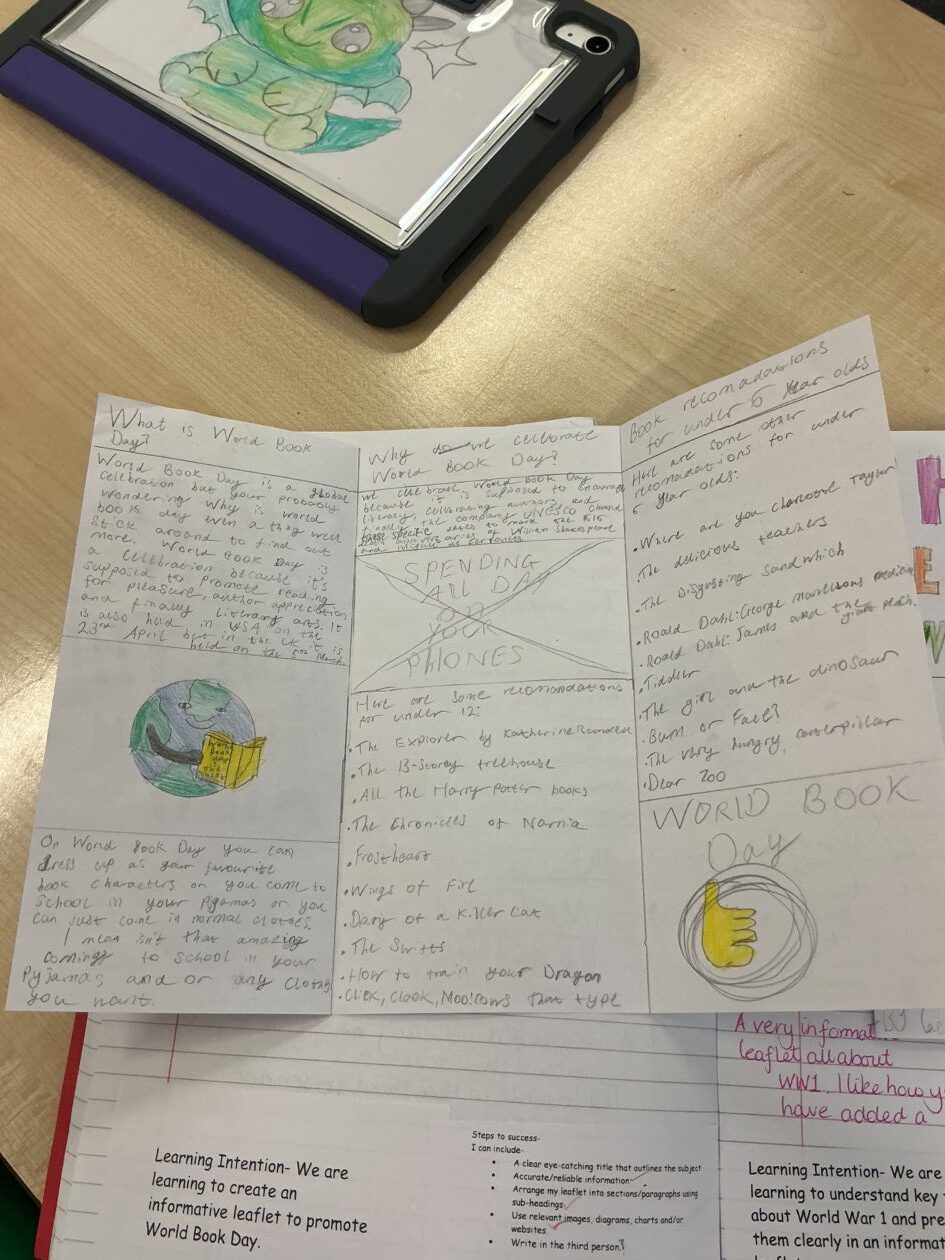 What is World Book
Day?
World Book Day is a global
celebration but your probably
wondering why is world
book day even a thing well
stick around to find out
more. World Book Day is
a celebration because it's
supposed to promote reading
for pleasure, author appreciation
and finally literary arts. It
is also held in USA on the
23rd April but in the UK it is
held on the 5th March.
On World Book Day you can
dress up as your favourite
book characters or you come to
School in your Pyjamas or you
can just come in normal clothes.
I mean isn't that amazing
coming to school in your
Pyjamas and or any clothes
you want.
Why do we cellbrate
World Book Day?
we celbrate World Book Day
because it is supposed to encourage
literacy, celebrating authors and
finally the company UNESCO chose
these specific dates to mark the
death anniversaries of William Shakespeare
and
SPENDING
ALL DAY
ON
YOUR
PHONES
Here are some recomondations
for under 12:
•The Explorer by Katherine Rundell
•The 13-Storey treehouse
•All the Harry Potter books
•The Chronicles of Narnia
•Frostheart
•Wings of Fire
•Diary of a Killer Cat
•The Swifts
•How to train your Dragon
•Click, Clack, Moo!Cows that type
Book recomadations
for under 5 Year olds
Here are some other
recomadations for under
5 Year olds:
•Where are you
•The delicious teachers
•The Disgusting Sandwhich
•Roald Dahl:George marvellous medicine
•Roald Dahl: James and the giant peach.
•Tiddler
•The girl and the dinosaur
•Bum or Face?
•The very hungry, caterpillar
•Dear Zoo
WORLD BOOK
Day
A very informat
leaflet all about
WW1. I like how y
have added a
Learning Intention- We are
learning to create an
informative leaflet to promote
World Book Day.
Steps to success-
I can include-
• A clear eye-catching title that outlines the subject
• Accurate/reliable information
• Arrange my leaflet into sections/paragraphs using
sub-headings
• Use relevant images, diagrams, charts and/or
websites.
• Write in the third person.
Learning Intention- We are
learning to understand key
about World War 1 and pre
them clearly in an informat